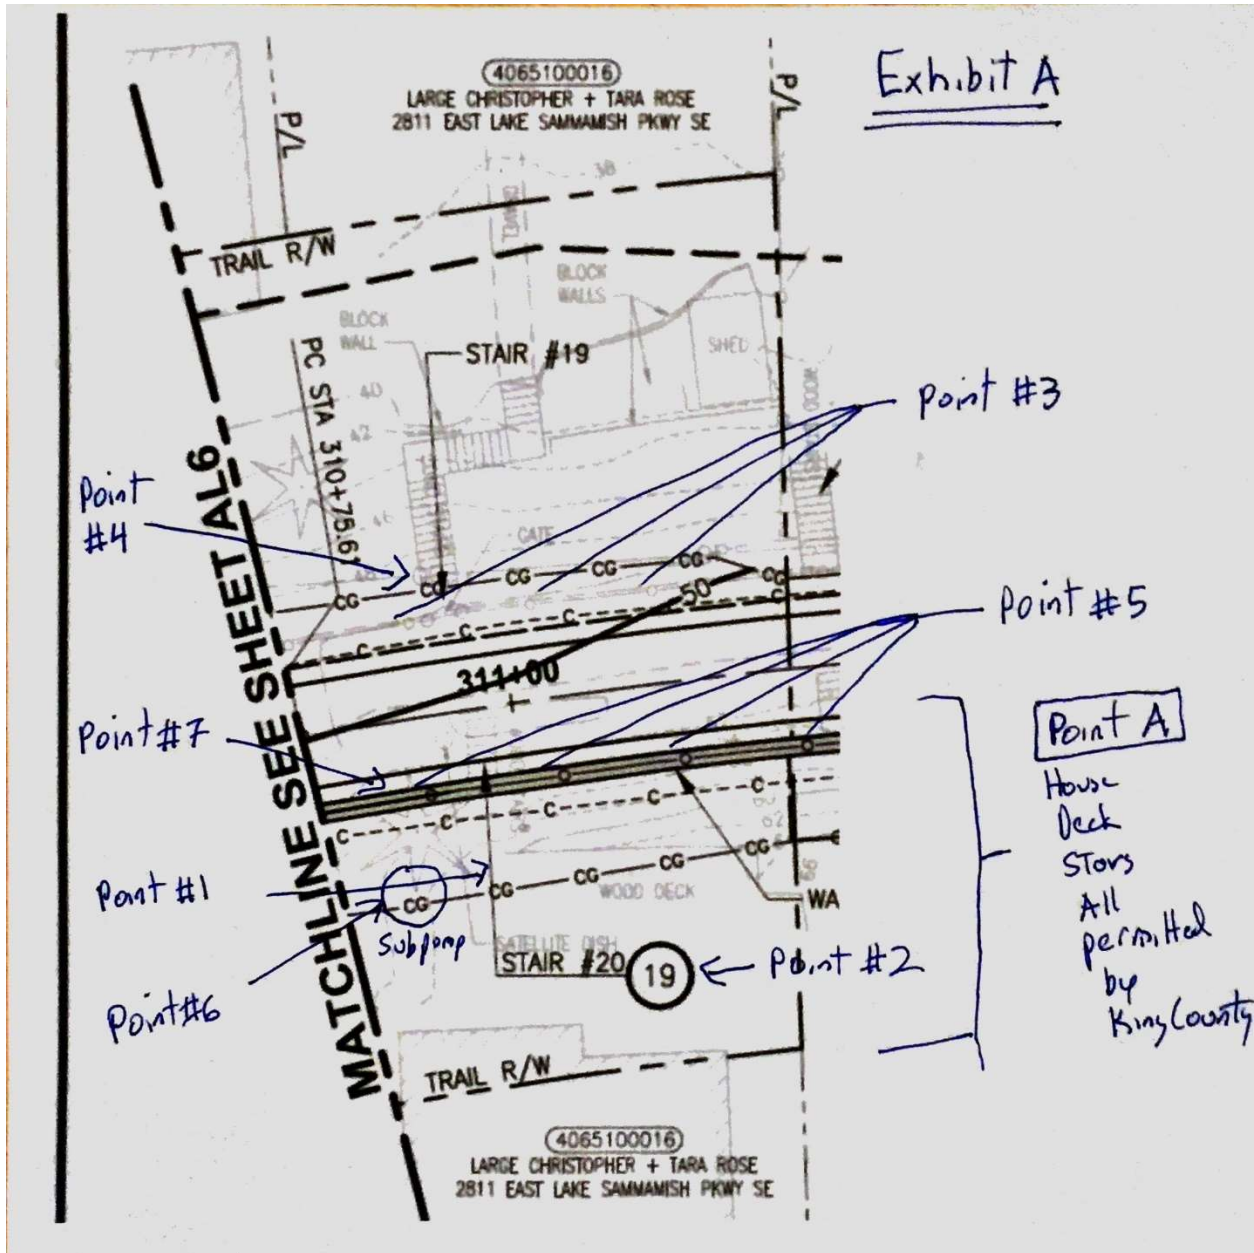 Exhibit A
4065100016
LARGE CHRISTOPHER + TARA ROSE
2811 EAST LAKE SAMMAMISH PKWY SE
P/L
P/L
38
GRAVEL
TRAIL R/W
BLOCK
WALLS
BLOCK
WALL
STAIR #19
SHED
PC STA 310+75.6
40
42
46
Point #3
WOOD
Point
#4
GATE
CG CG CG CG CG CG
50
C C C C
Point #5
311+00
MATCHLINE SEE SHEET AL6
Point #7
Point A
House
Deck
Stors
All
permitted
by
King County
C C C C C
62
66
Point #1
CG CG CG CG CG C
WOOD DECK
WA
Subpomp
SATELLITE DISH
STAIR #20
19
Point #2
Point #6
TRAIL R/W
4065100016
LARGE CHRISTOPHER + TARA ROSE
2811 EAST LAKE SAMMAMISH PKWY SE